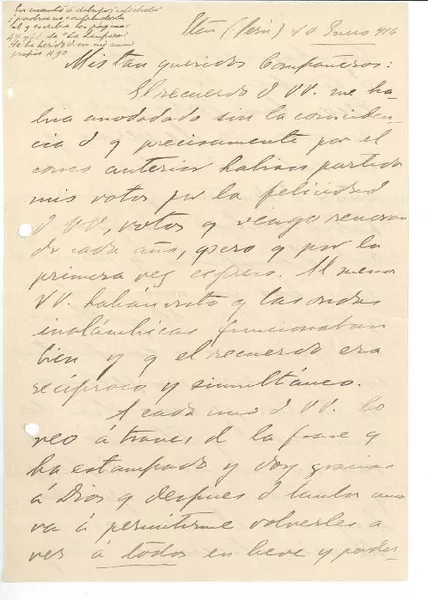 En cuanto a dibujos
Itén (Perú) 20 Enero 916
Mis tan queridos Compañeros:
El recuerdo d VV. me ha-
bría anonadado sin la coinciden-
cia d q precisamente por el
correo anterior habían partido
mis votos por la felicidad
d VV, votos q vengo renovan-
do cada año, pero q por la
primera vez expreso. Al menos
VV. habrán visto q las ondas
inalámbricas funcionaban
bien y q el recuerdo era
recíproco y simultáneo.
A cada uno d VV. lo
veo á traves d la frase q
ha estampado y doy gracias
á Dios q despues d tanto
va á permitirme volverles a
ver á todos en breve y poder